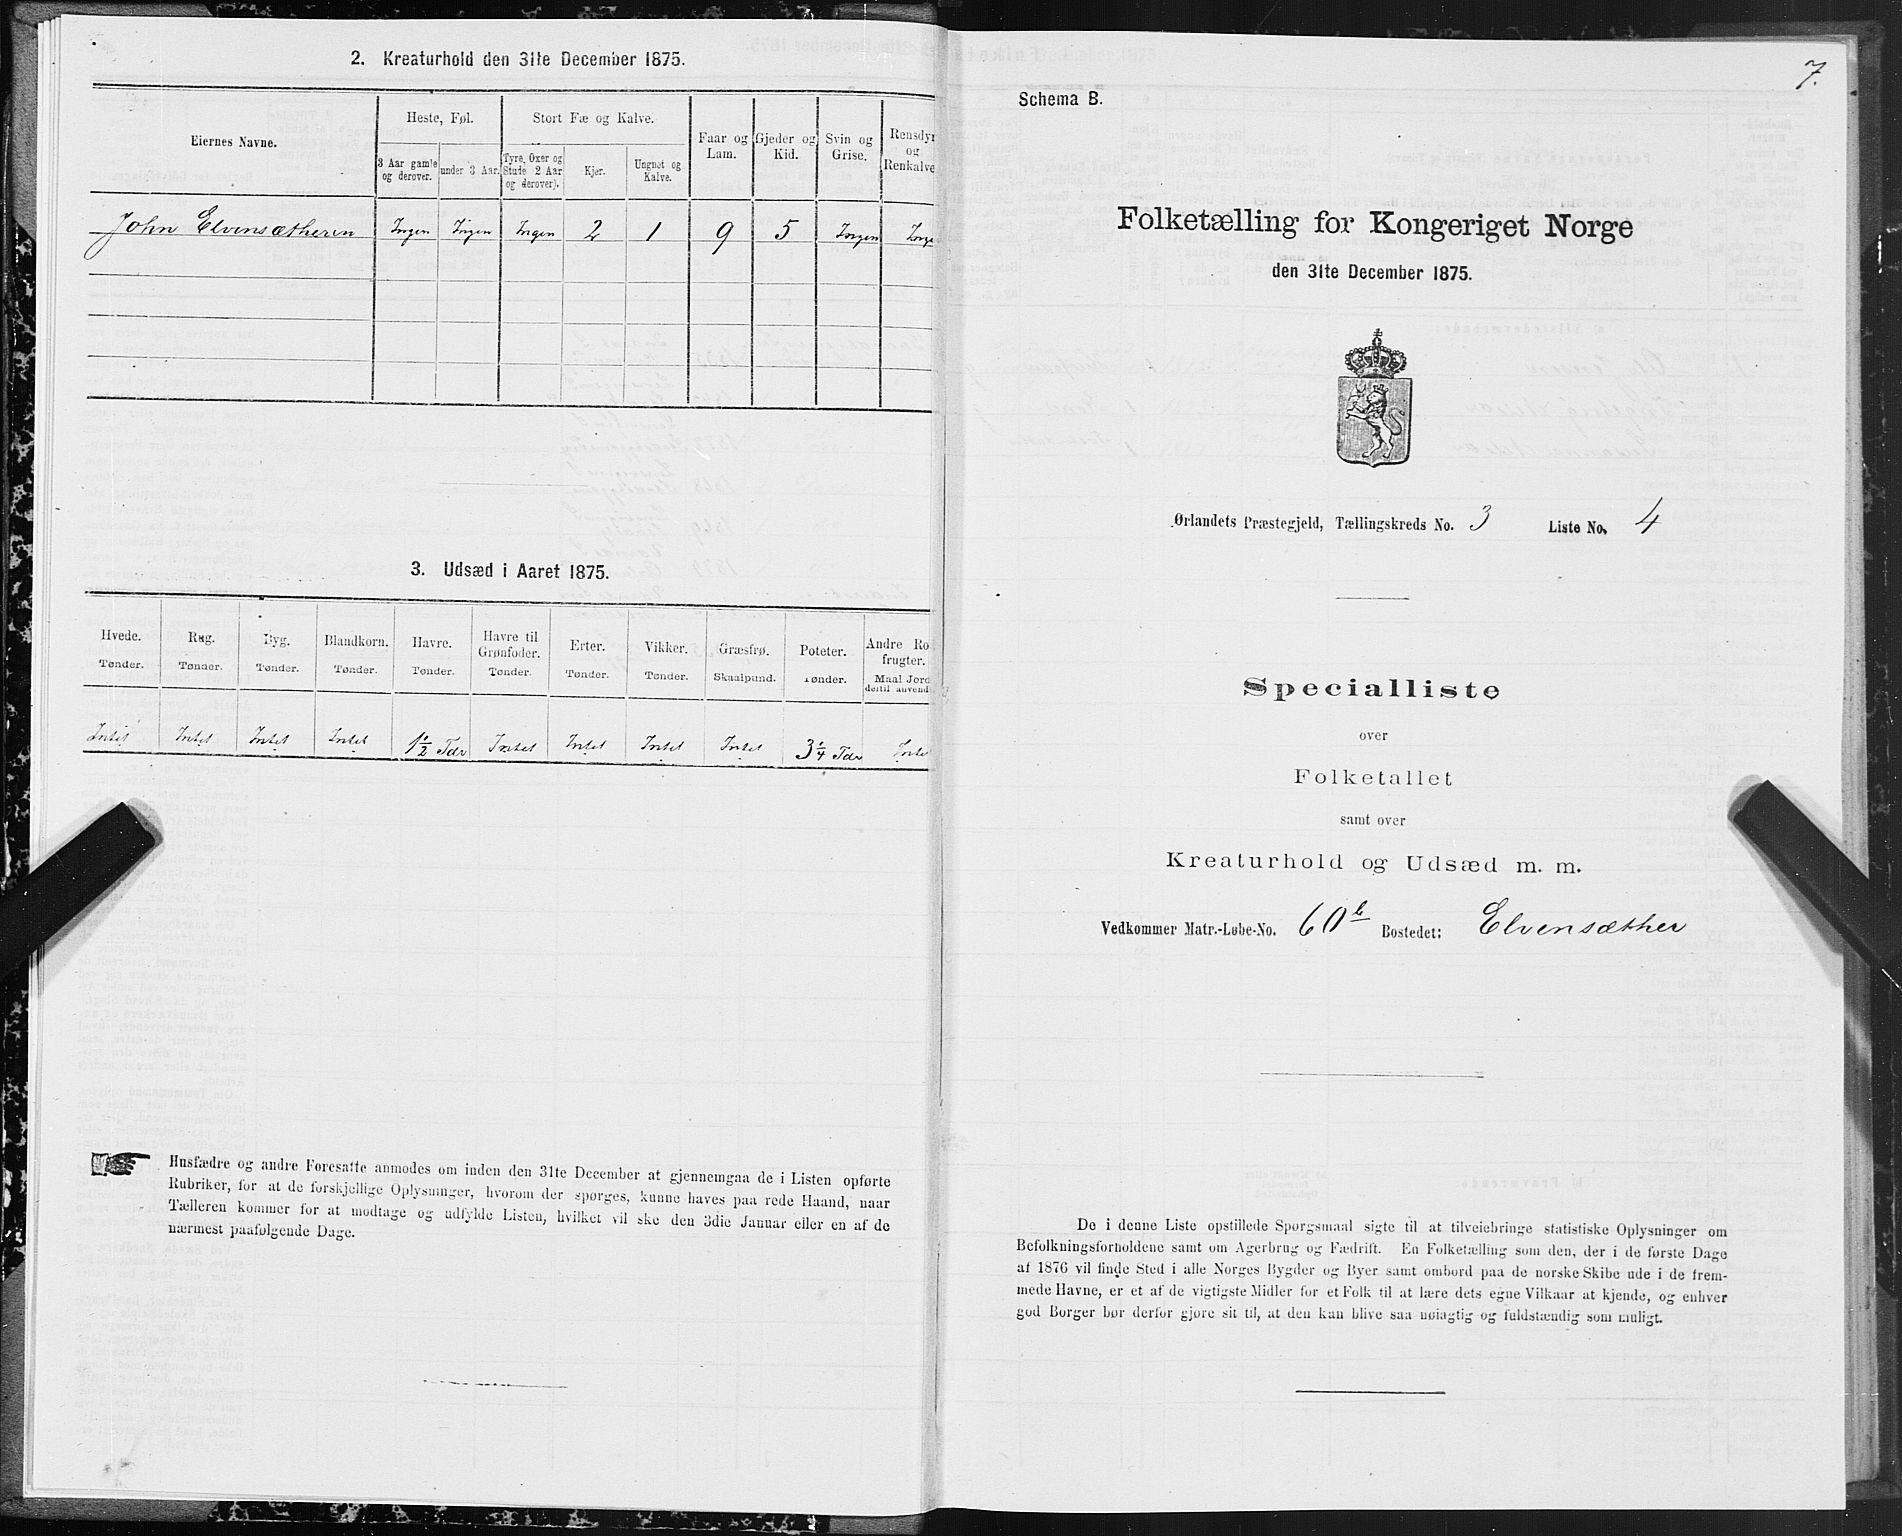 2. Kreaturhold den 31te December 1875.
Eiernes Navne.
Heste, Føl.
Stort Fæ og Kalve.
Faar og Lam.
Gjeder og Kid.
Svin og Grise.
Rensdyr og Renkalve
3 Aar gamle og derover.
under 3 Aar.
Tyre, Oxer og Stude 2 Aar og derover).
Kjer.
Ungnøt og Kalve.
John Elvensætheren Ingen Ingen Ingen 2 1 9 5 Ingen Inge
3. Udsæd i Aaret 1875.
Hvede. Rug. Byg. Blandkorn. Havre. Havre til Grønfoder. Erter. Vikker. Græsfrø. Poteter. Andre Ro frugter.
Tønder. Tønder. Tønder. Tønder. Tønder. Tønder. Tønder. Tønder. Skaalpund. Tønder. Maal Jord dertil anvend
Intet Intet Intet Intet 1½ Tdr Intet Intet Intet Intet 3¼ Tdr Inte
Husfædre og andre Foresatte anmodes om inden den 31te December at gjennemgaa de i Listen opførte
Rubriker, for at de forskjellige Oplysninger, hvorom der spørges, kunne haves paa rede Haand, naar
Tælleren kommer for at modtage og udfylde Listen, hvilket vil ske den 3die Januar eller en af de
nærmest paafølgende Dage.
7.
Schema B.
Folketælling for Kongeriget Norge
den 31te December 1875.
Ørlandets Præstegjeld, Tællingskreds No. 3 Liste No. 4
Specialliste
over
Folketallet
samt over
Kreaturhold og Udsæd m. m.
Vedkommer Matr.-Løbe-No. 60b Bostedet: Elvensæther
De i denne Liste opstillede Spørgsmaal sigte til at tilveiebringe statistiske Oplysninger om
Befolkningsforholdene samt om Agerbrug og Fædrift. En Folketælling som den, der i de første Dage
af 1876 vil finde Sted i alle Norges Bygder og Byer samt ombord paa de norske Skibe ude i de frem-
mede Havne, er et af de vigtigste Midler for et Folk til at lære dets egne Vilkaar at kjende, og enhver
god Borger bør derfor gjøre sit til, at den kan blive saa nøiagtig og fuldstændig som muligt.